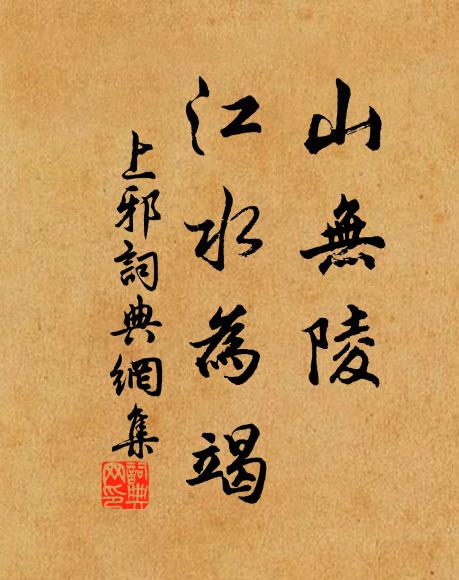 山無陵
江水為竭
上邪詞典網集
詞典網印